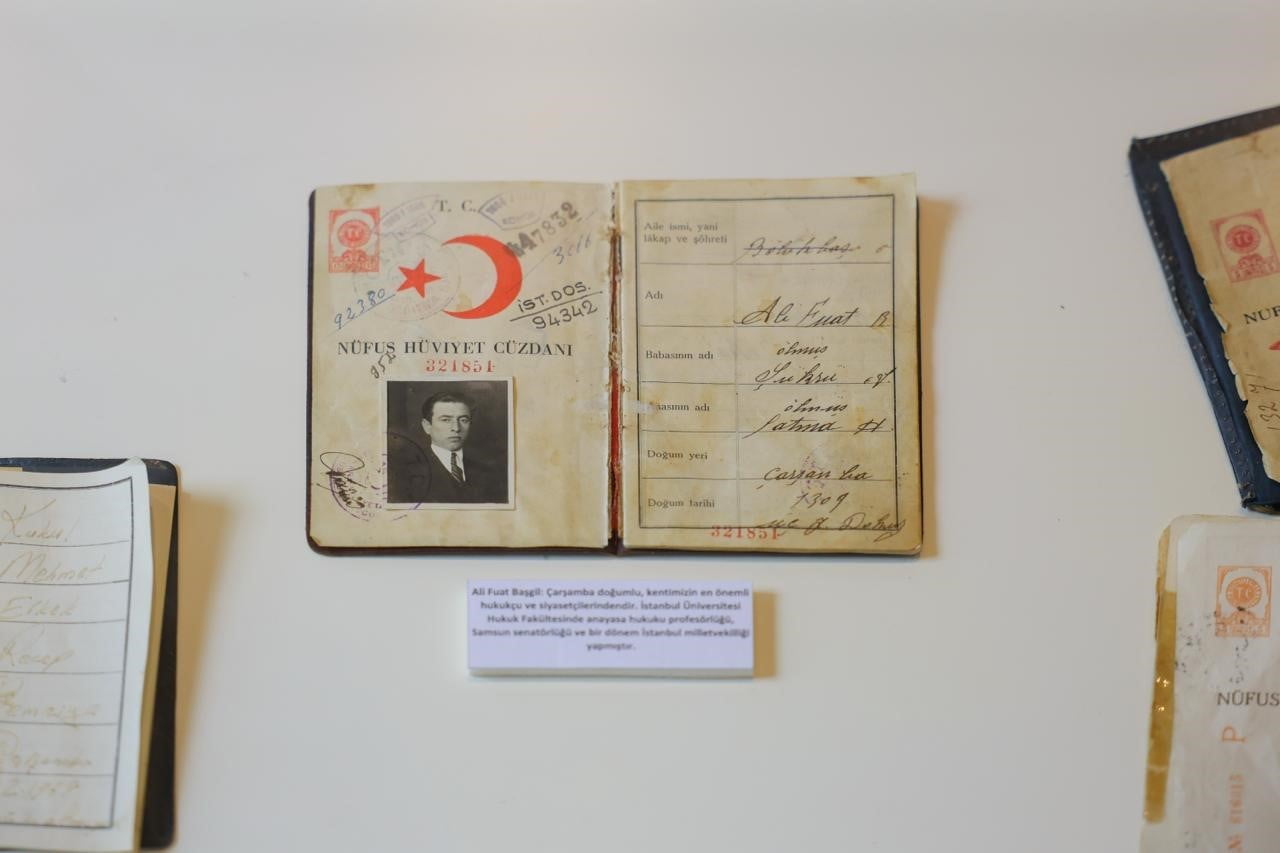 T. C.
447832
3266
92380
İST. DOS.
94342
NÜFUS HÜVİYET CÜZDANI
321851
Aile ismi, yani
lâkap ve şöhreti
Adı
Ali Fuat B
Babasının adı
ölmüş
Şükrü ef.
Anasının adı
ölmüş
Fatma H.
Doğum yeri
Çarşanba
Doğum tarihi
1309
321851
Ali Fuat Başgil: Çarşamba doğumlu, kentimizin en önemli
hukukçu ve siyasetçilerindendir. İstanbul Üniversitesi
Hukuk Fakültesinde anayasa hukuku profesörlüğü,
Samsun senatörlüğü ve bir dönem İstanbul milletvekilliği
yapmıştır.
Mehmet
Erkek
Recep
NÜFUS
P